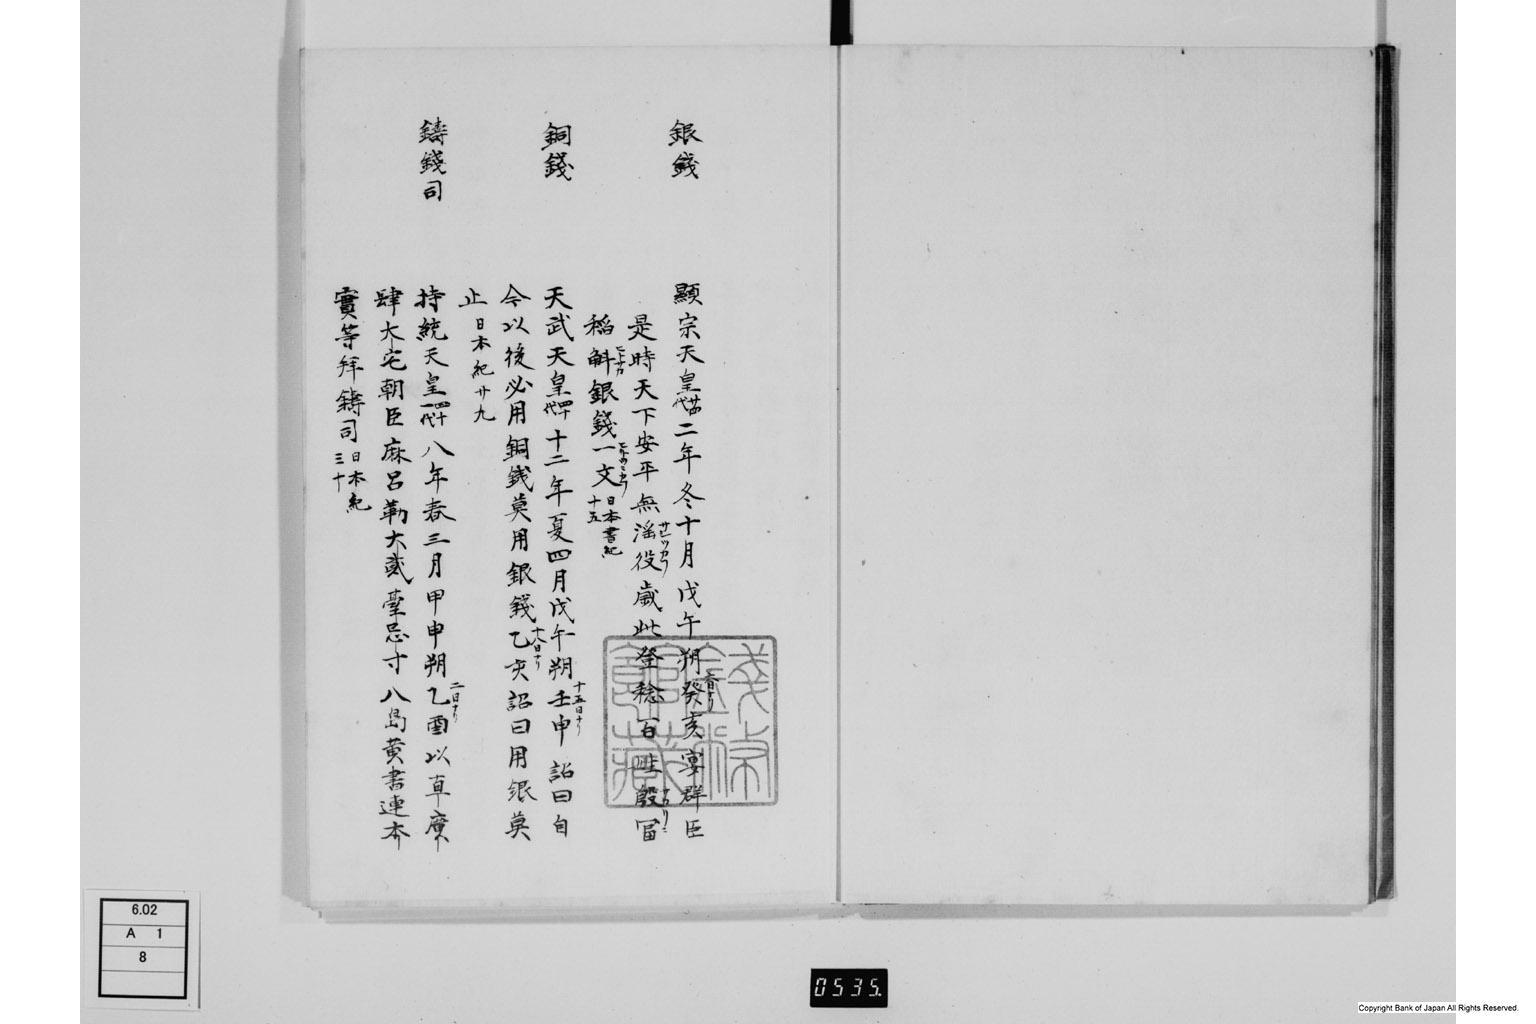 銀錢
顯宗天皇廿四代二年冬十月戊午朔癸亥宴群臣
是時天下安平無滛役歳比登稔百姓殷冨
稲斛銀錢一文日本書紀十五
銅錢
天武天皇四十代十二年夏四月戊午朔壬申詔曰自
今以後必用銅銭莫用銀錢乙亥詔曰用銀莫
止日本紀廿九
鑄錢司
持統天皇四十一代八年春三月甲申朔乙酉以直廣
肆大宅朝臣麻呂勤大貳臺忌寸八島黄書連本
實等拜鑄司日本紀三十
十五日ナリ
十八日ナリ
二日ナリ
錢幣館藏
6.02
A 1
8
0535.
Copyright Bank of Japan All Rights Reserved.